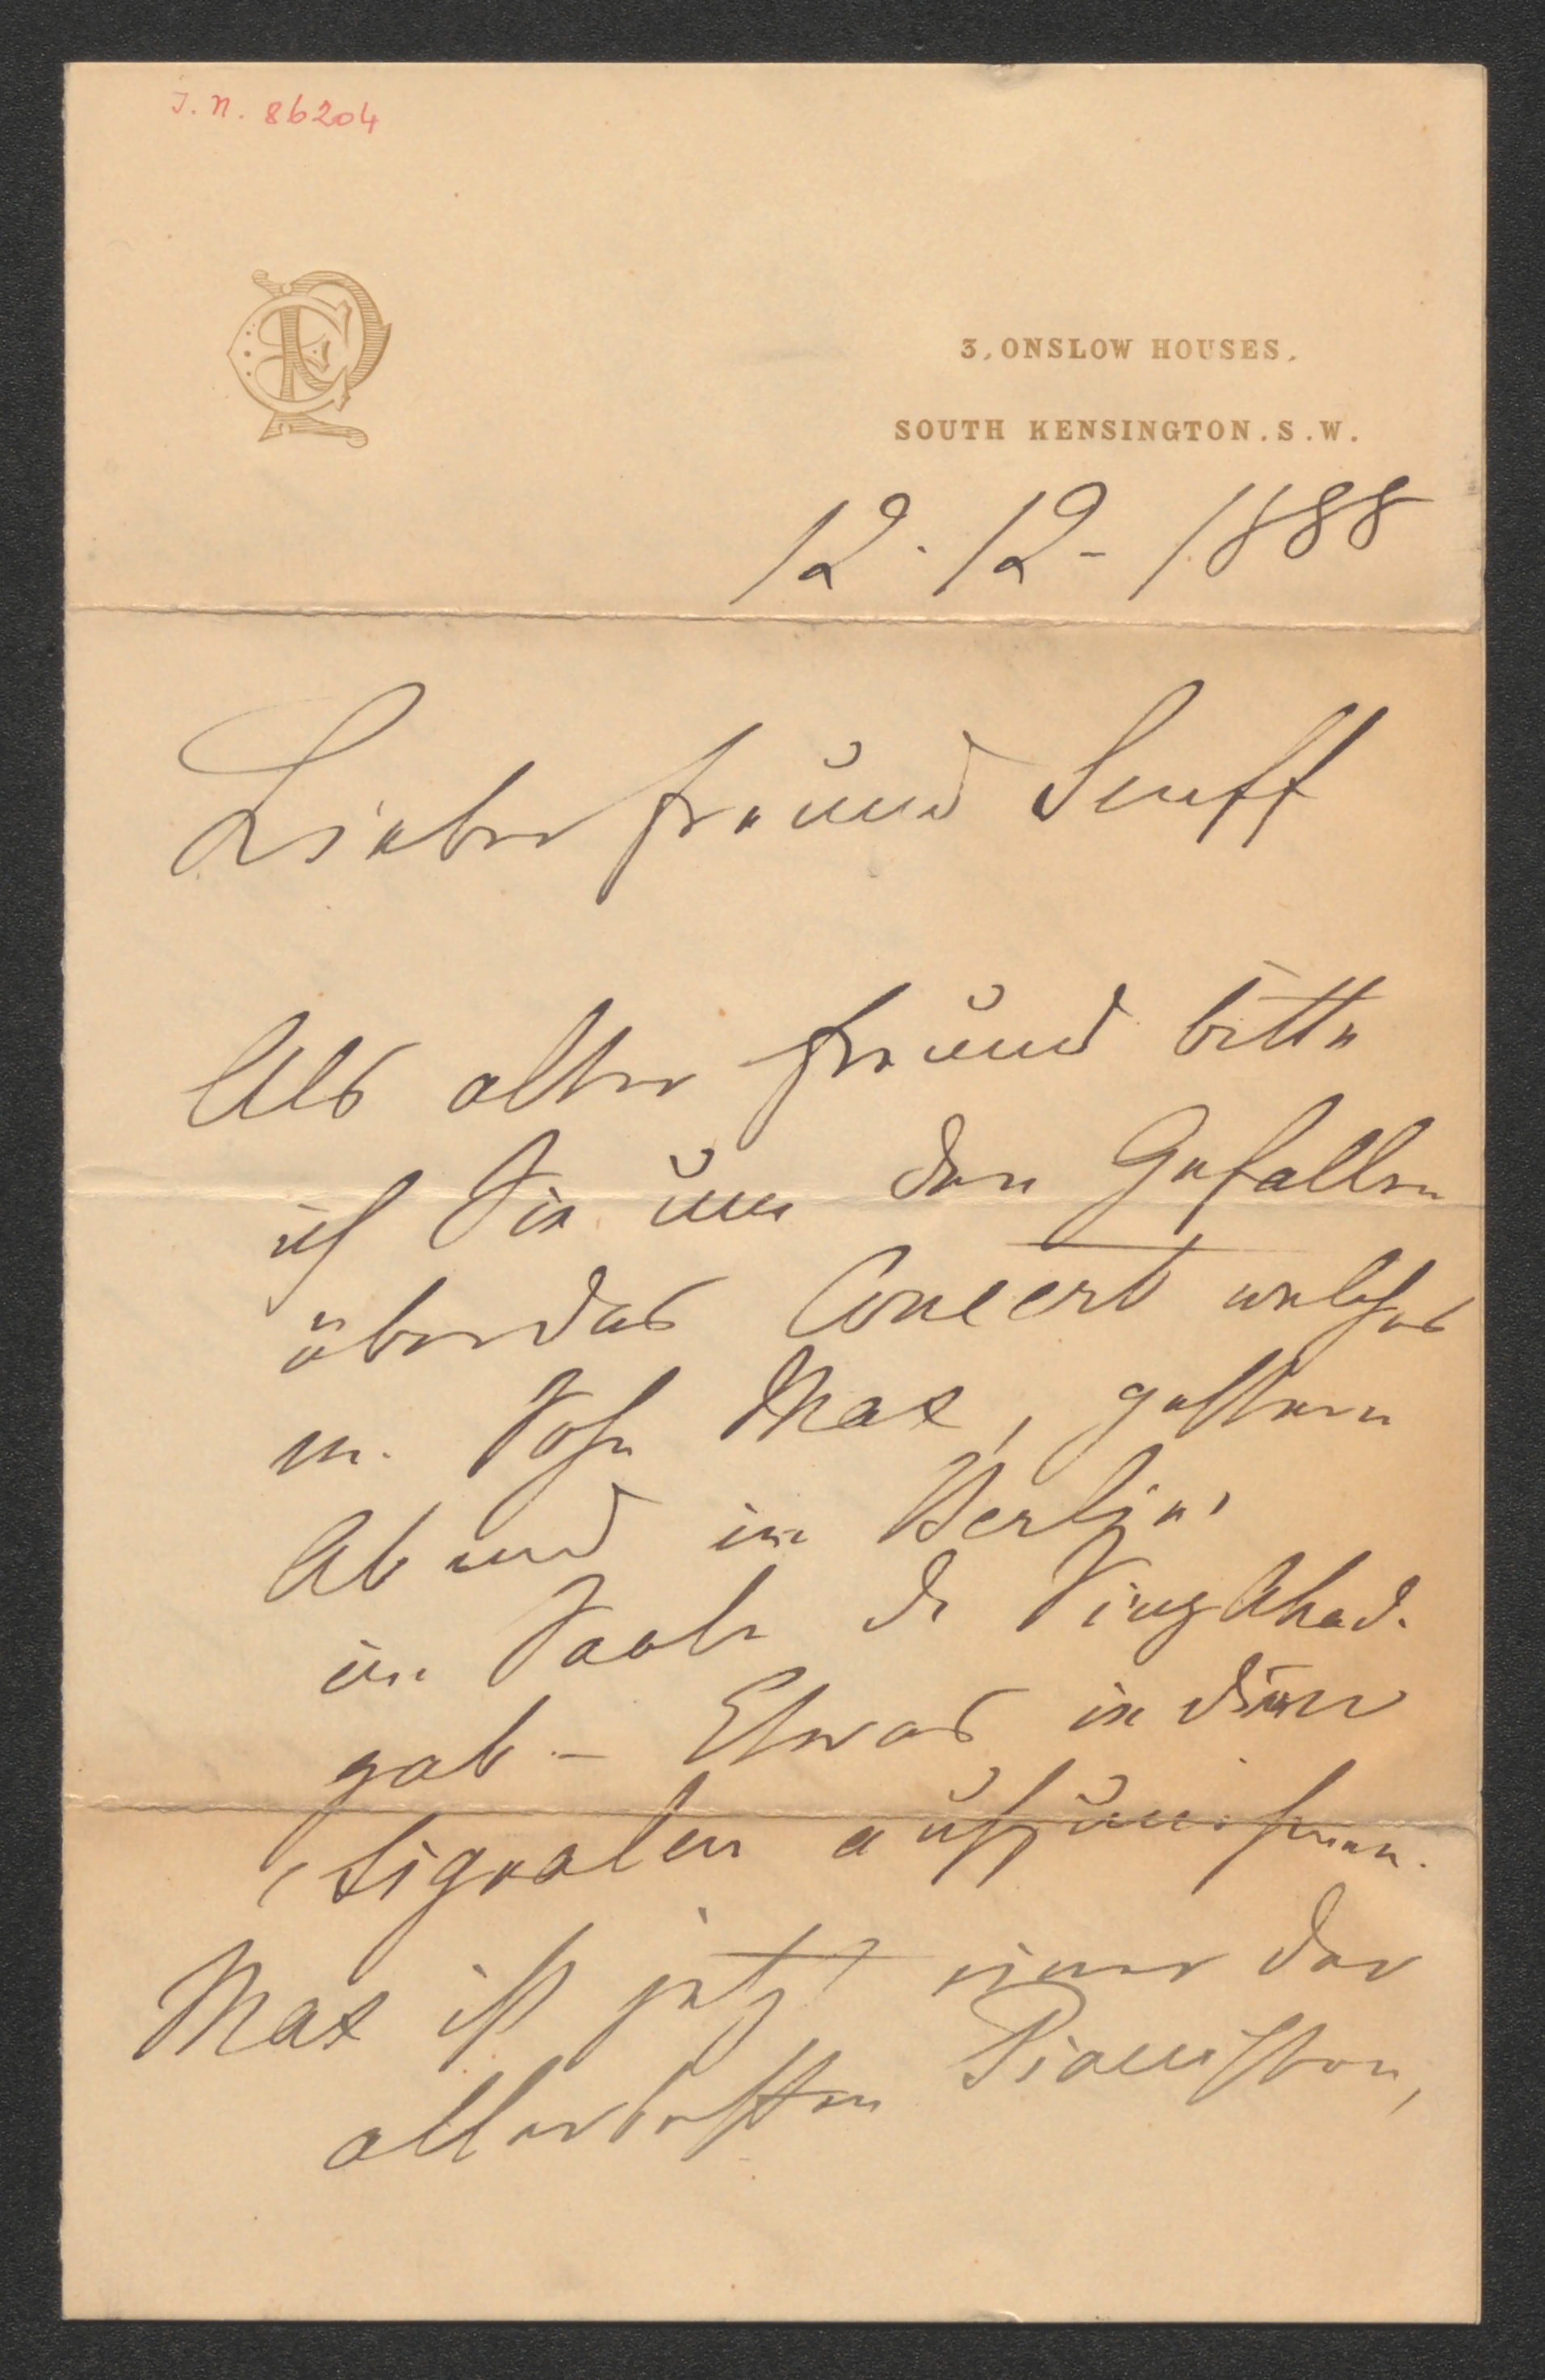 I. N. 86204
3, ONSLOW HOUSES,
SOUTH KENSINGTON. S. W.
12. 12 - 1888
Lieber Freund Senff
Als alter Freund bitte
ich Sie um den Gefallen
über das Concert welches
m. Sohn Max, gestern
Abend in Berlin,
im Saale dr SingAkad.
gab - Etwas in den
Signalen aufzunehmen.
Max ist jetzt einer der
allerbesten Pianisten,